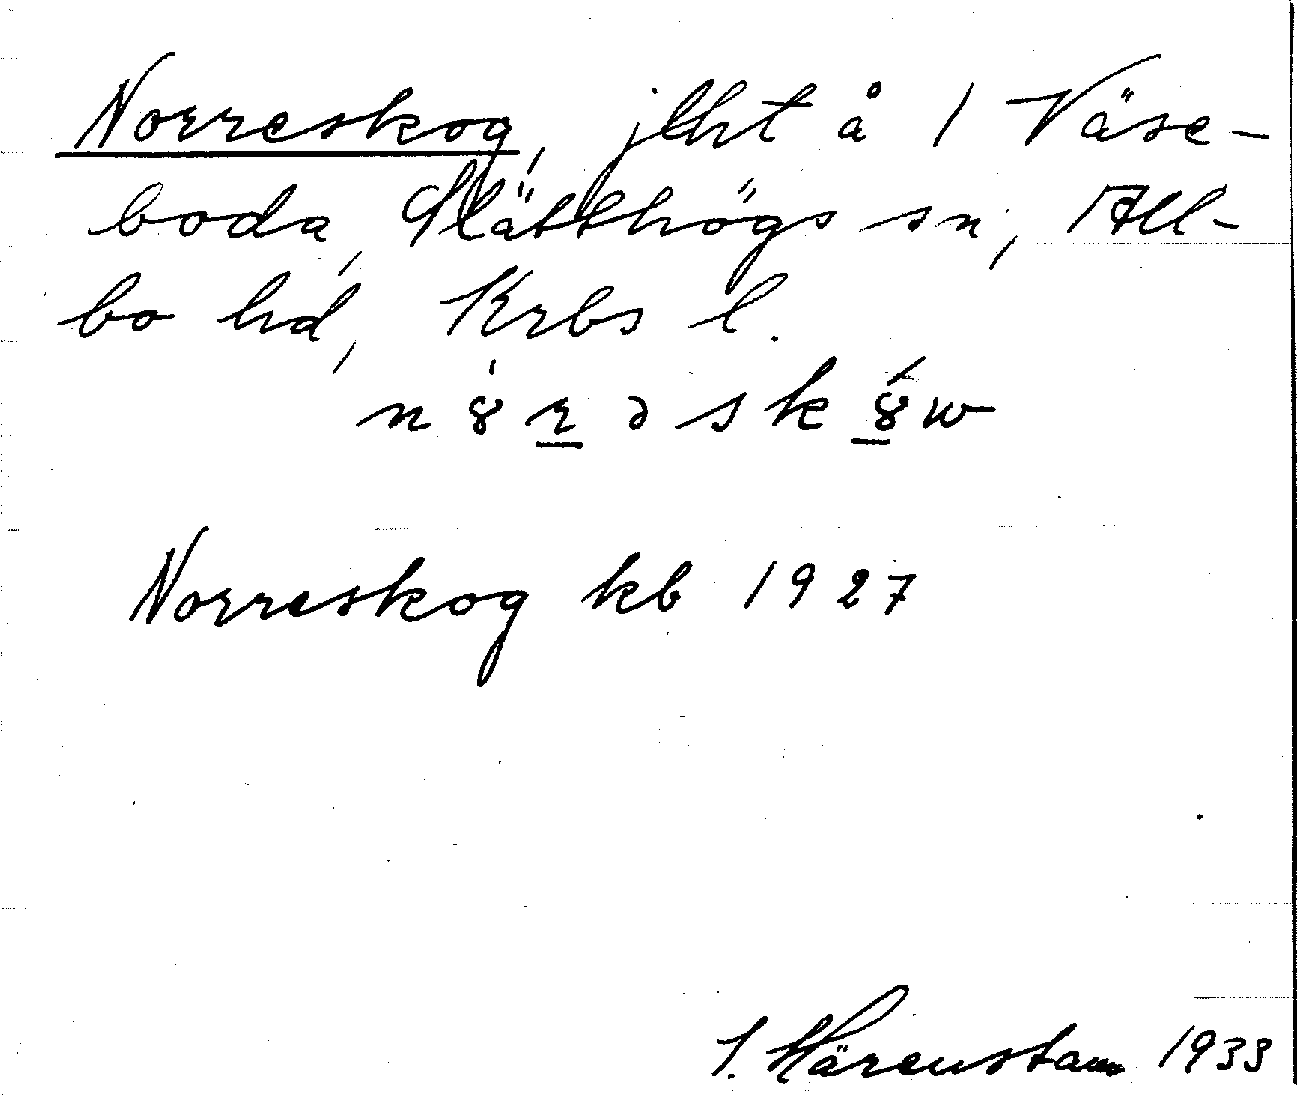 Norreskog, jlht å 1 Väse-
boda, Slätthögs sn, All-
bo hd, Krbs l.
Norreskog kb 1927
Härenstam 1933